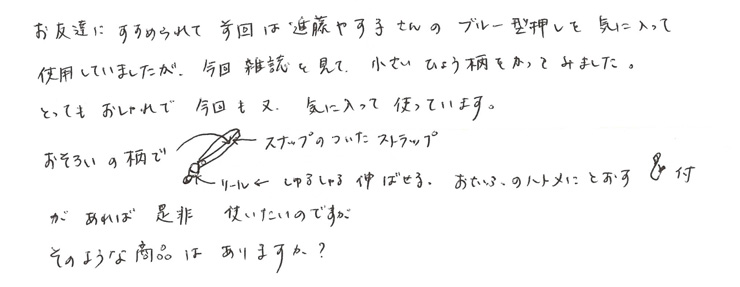 お友達にすすめられて 前回は 進藤やす子さんの ブルー型押しを 気に入って
使用していましたが、今回 雑誌を見て、小さい ひょう柄をかってみました。
とっても おしゃれで 今回も又、気に入って 使っています。
おそろいの柄で スナップのついた ストラップ
リール← しゅるしゅる 伸ばせる。 おさいふのハトメにとおす 付
が あれば 是非 使いたいのですが
そのような商品は ありますか?